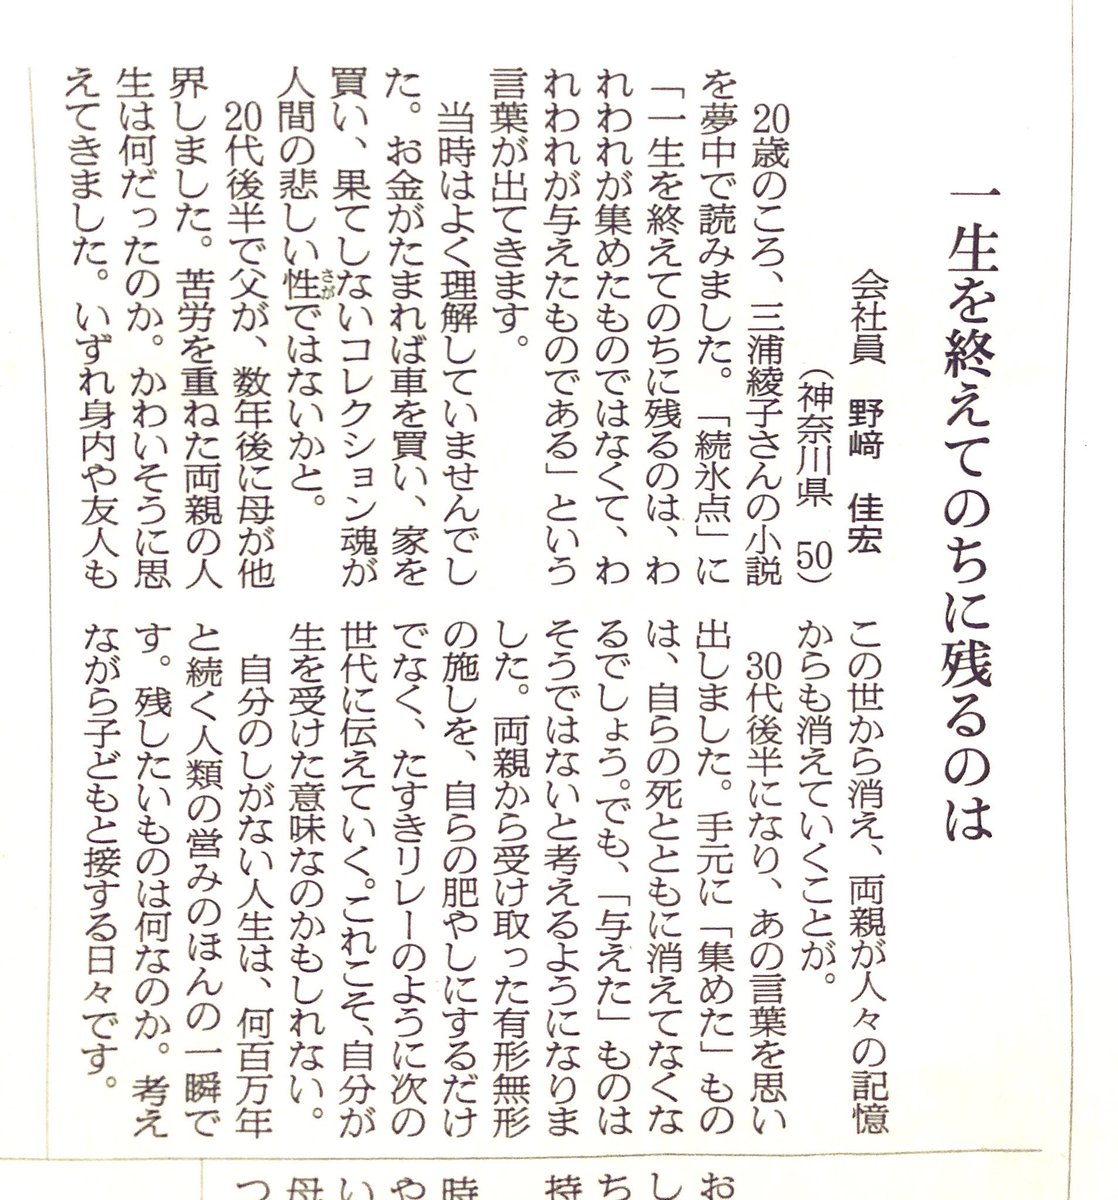 一生を終えてのちに残るのは
会社員　野﨑　佳宏
（神奈川県　50）
20歳のころ、三浦綾子さんの小説
を夢中で読みました。「続氷点」に
「一生を終えてのちに残るのは、わ
れわれが集めたものではなくて、わ
れわれが与えたものである」という
言葉が出てきます。
当時はよく理解していませんでし
た。お金がたまれば車を買い、家を
買い、果てしないコレクション魂が
人間の悲しい性さがではないかと。
20代後半で父が、数年後に母が他
界しました。苦労を重ねた両親の人
生は何だったのか。かわいそうに思
えてきました。いずれ身内や友人も
この世から消え、両親が人々の記憶
からも消えていくことが。
30代後半になり、あの言葉を思い
出しました。手元に「集めた」もの
は、自らの死とともに消えてなくな
るでしょう。でも、「与えた」ものは
そうではないと考えるようになりま
した。両親から受け取った有形無形
の施しを、自らの肥やしにするだけ
でなく、たすきリレーのように次の
世代に伝えていく。これこそ、自分が
生を受けた意味なのかもしれない。
自分のしがない人生は、何百万年
と続く人類の営みのほんの一瞬で
す。残したいものは何なのか。考え
ながら子どもと接する日々です。
お
し
ち
持
時
や
い
母
つ